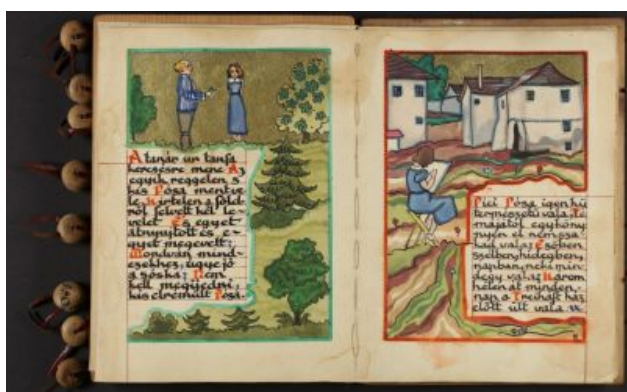 A tanár úr tanfa
keresésre mene Az
egyik reggelen s
kis Pósa ment ve
le. Hirtelen a föld
ről felvett két le
velet És egyet
átnyujtott és e-
gyet megevett:
Mondván mind-
ezekhez, ugye jó
a sóska; Nem
kell megijedni,
kis elrémült Pósa.
Pici Pósa igen hű
természetű vala,
egykönny
nyen el nem sza
kad vala: Esőben
szélben, hidegben,
napban, neki min
degy vala: Három
héten át minden-
nap a Freihaft ház
előtt ült vala